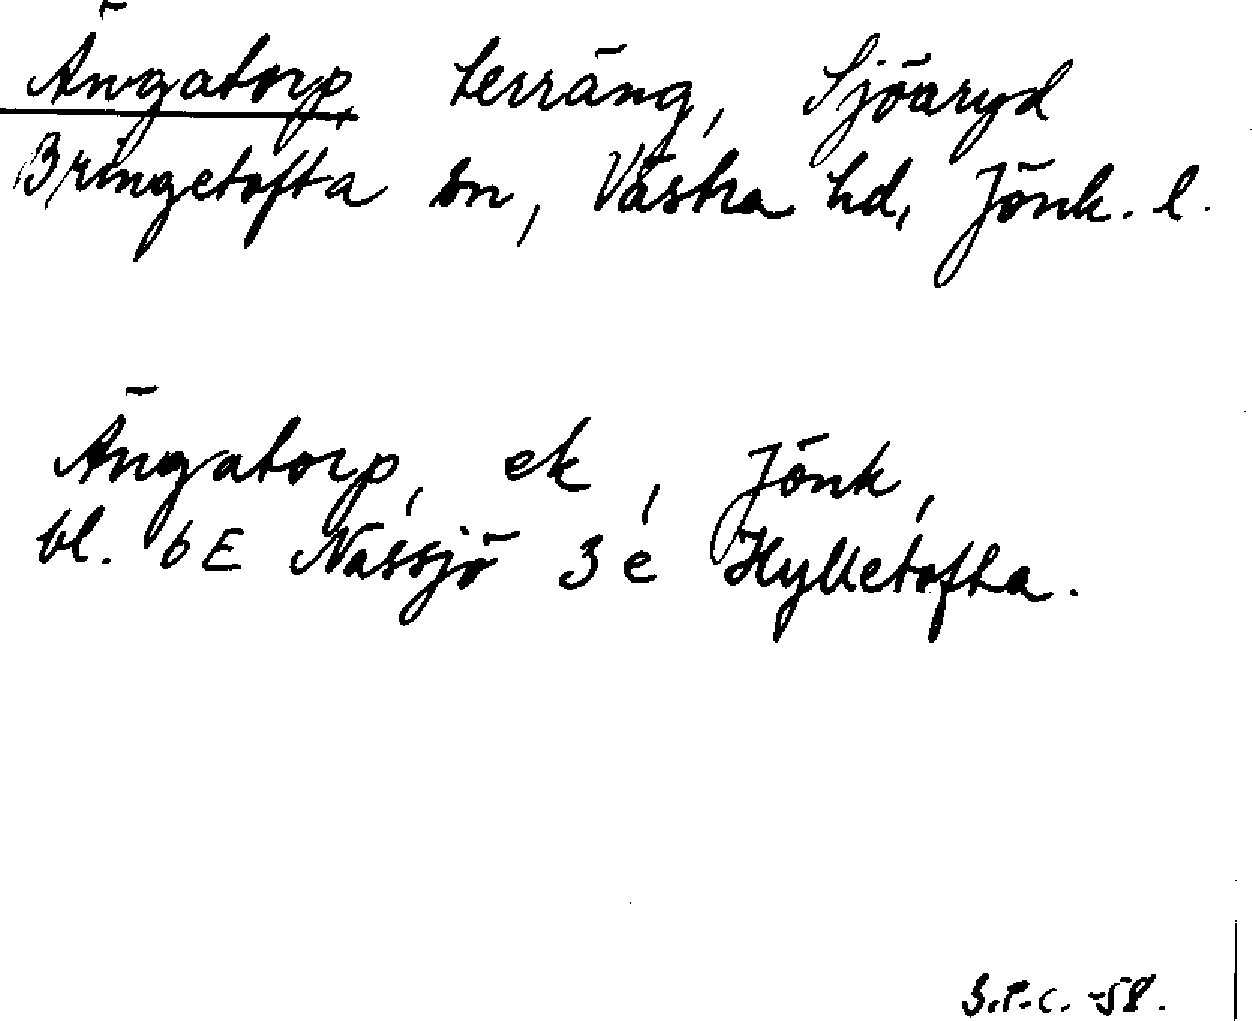 Ängatorp, terräng, Sjöaryd
Bringetofta sn, Västra hd, Jönk. l.
Ängatorp, ek, Jönk,
bl. 6E Nässjö 3 e Hylletofta.
S.P.C. -58.